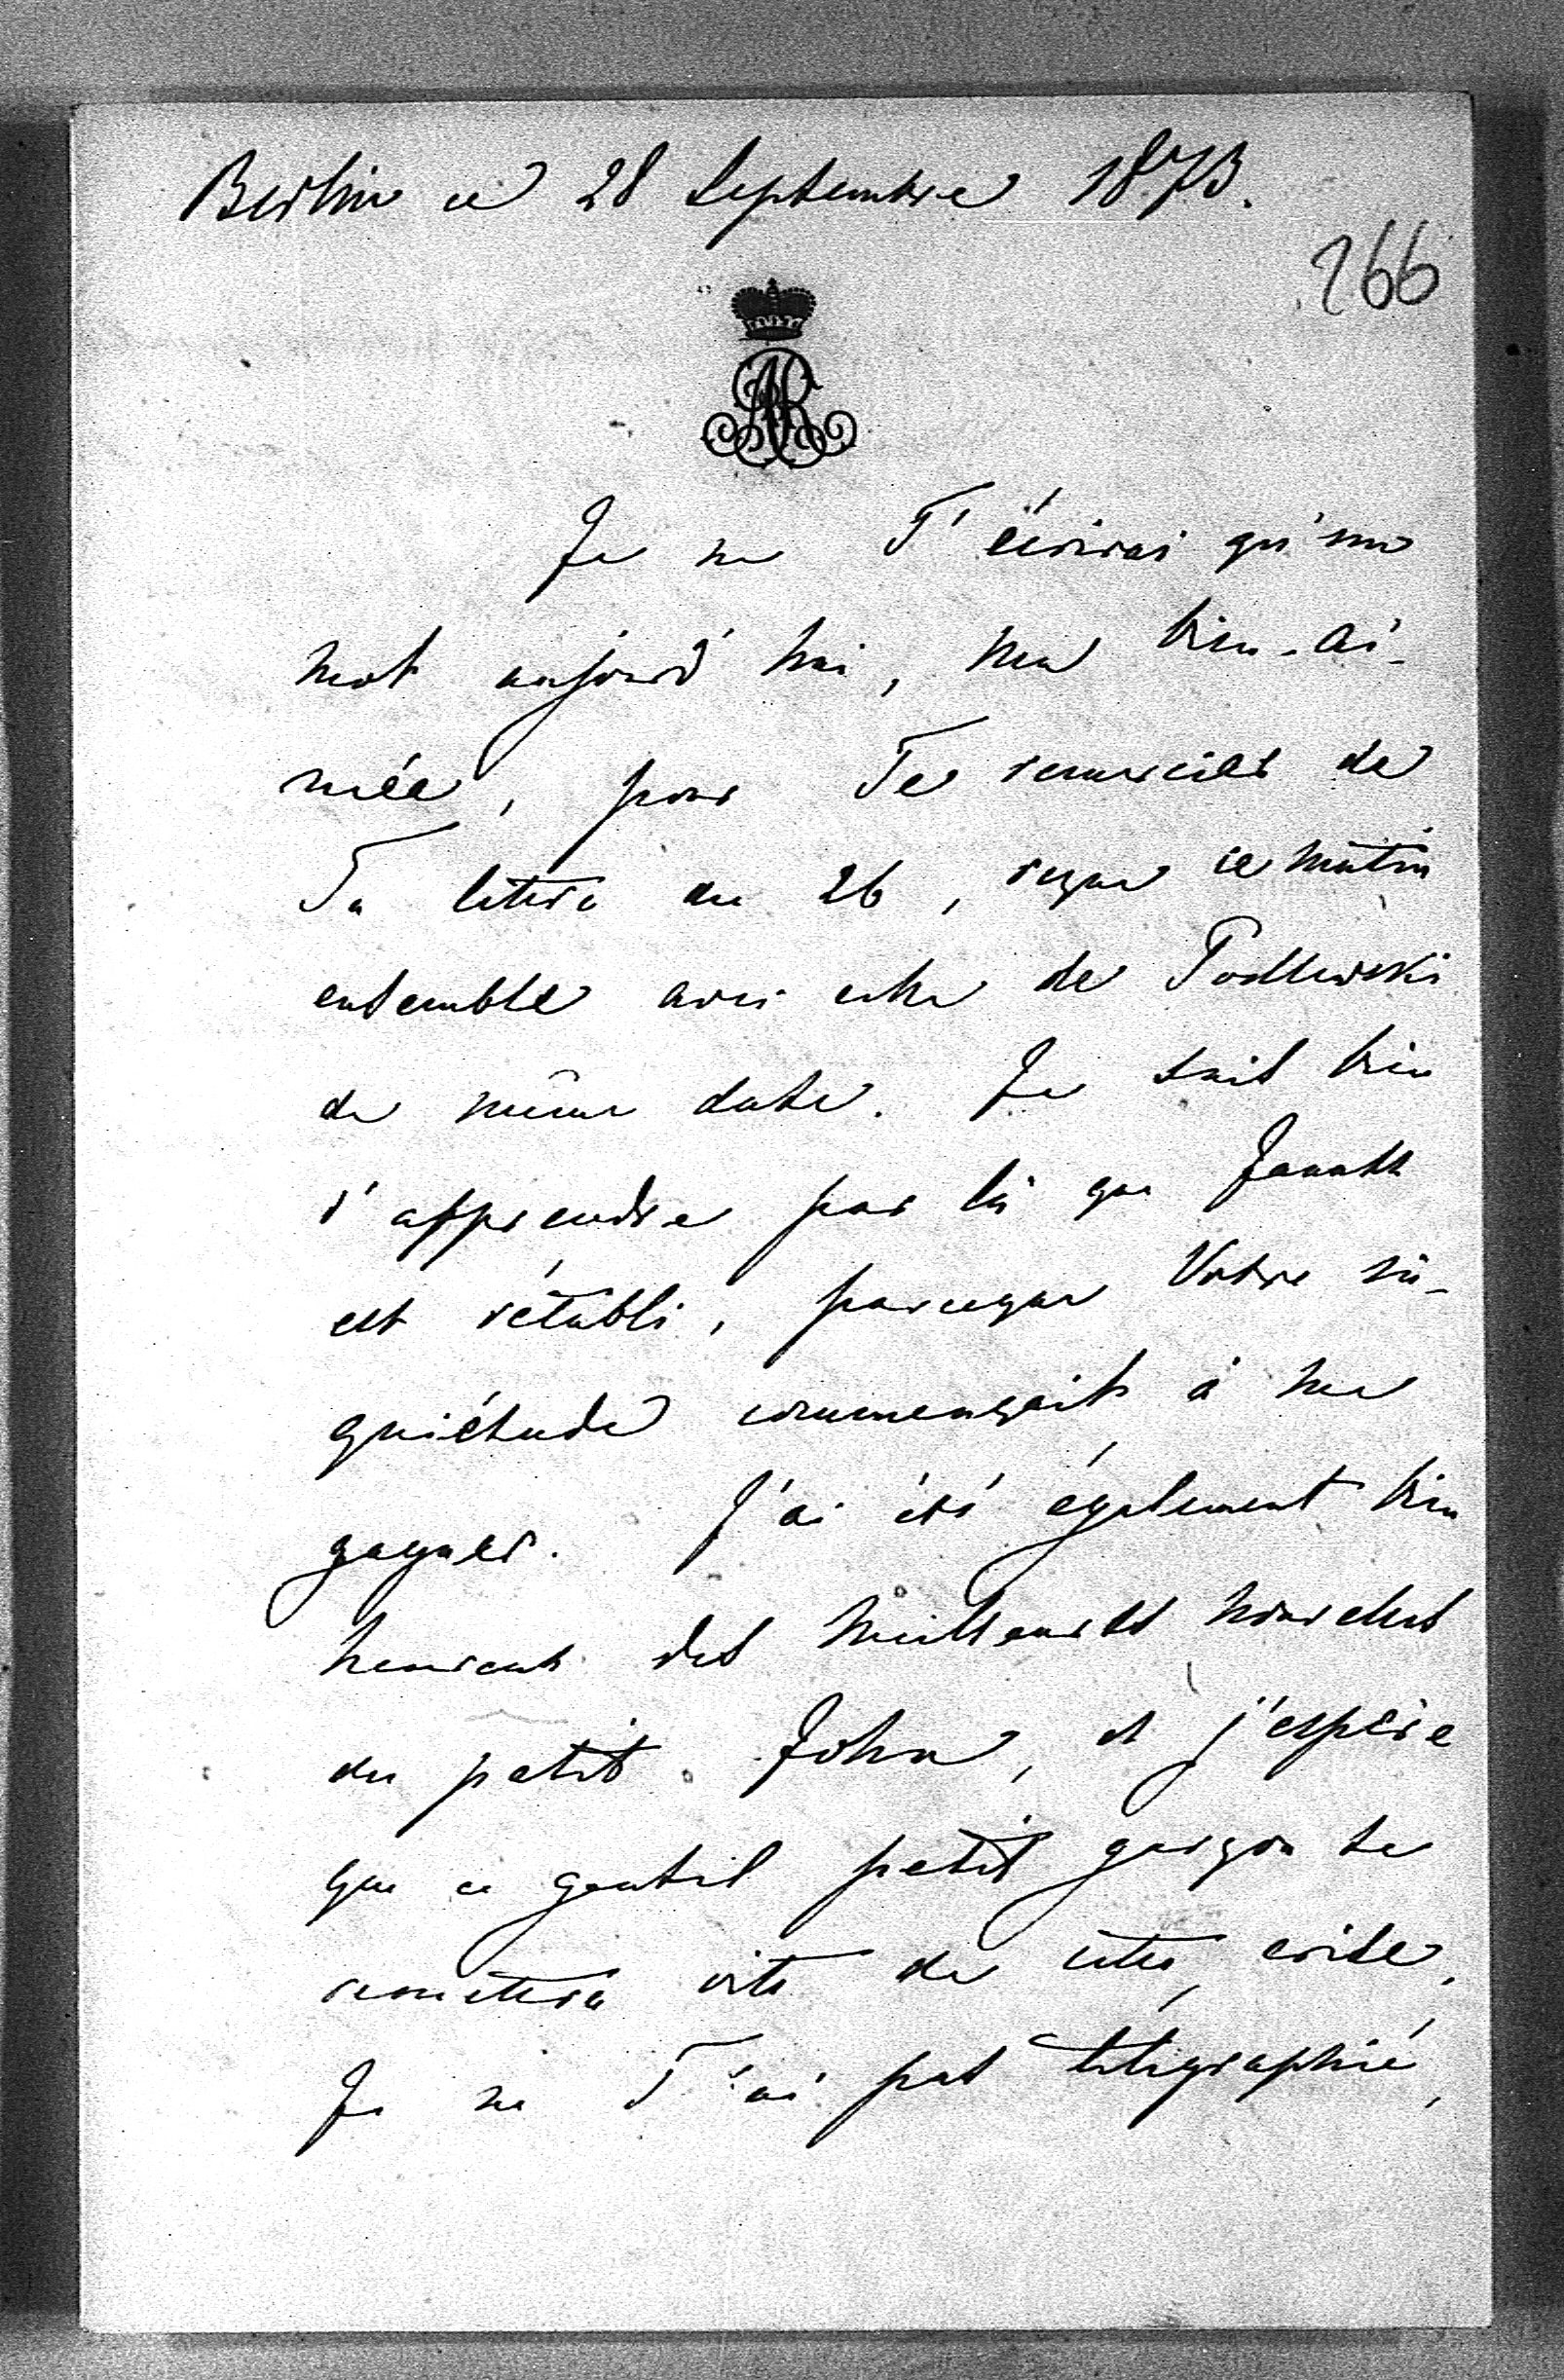 Berlin ce 28 Septembre 1873.
266
AR
Je ne T'écrirai qu'un
mot aujourd'hui, ma bien-ai-
mée, pour Te remercier de
Ta lettre du 26, reçue ce matin
ensemble avec celle de Podlewski
de même date. Je suis bien
d'apprendre par là que
est rétabli, parceque Votre in-
quiétude commençait à me
gagner. J'ai été également bien
heureux des meilleures nouvelles
du petit John, et j'espère
que ce gentil petit garçon se
remettra vite de cette crise.
Je ne T'ai pas télégraphié,